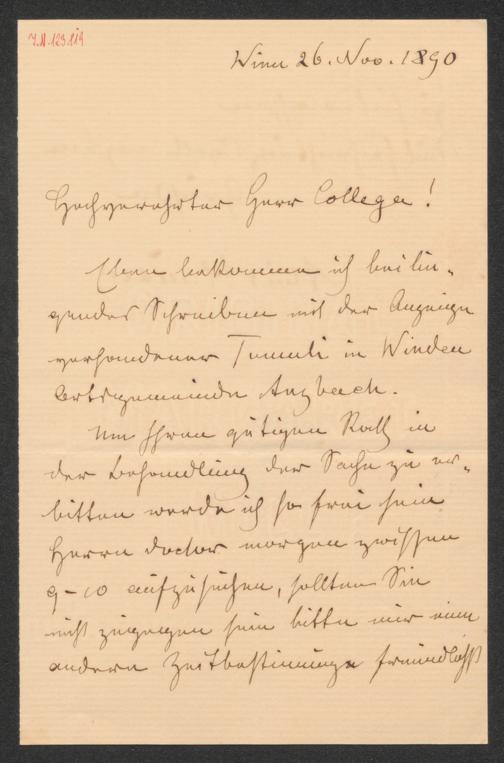 J.N. 123.119
Wien 26. Nov. 1890
Hochverehrter Herr College!
Eben bekomme ich beilie-
gendes Schreiben mit der Anzeige
vorhandener Tumuli in Winden
Ortsgemeinde Anzbach.
Um Ihren gütigen Rath in
der Behandlung der Sache zu er-
bitten werde ich so frei sein
Herrn Doctor morgen zwischen
9-10 aufzusuchen, sollten Sie
nicht zugegen sein bitte mir einen
andern Zeitbestimmung freundlichst